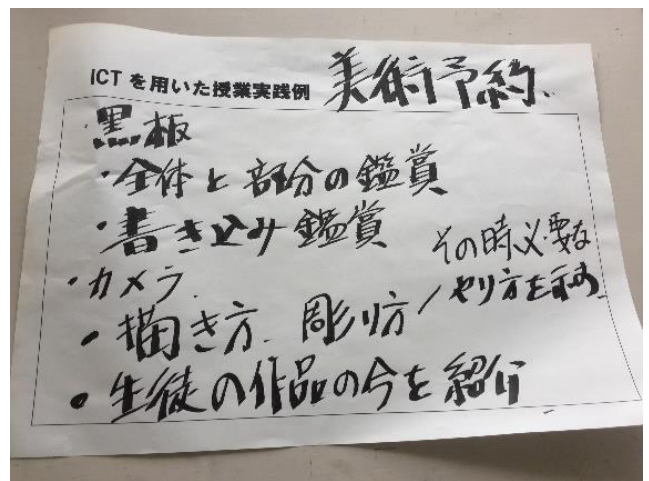 ICTを用いた授業実践例 美術予約
・黒板
・全体と部分の鑑賞
・書き込み鑑賞
・カメラ
・描き方、彫り方/その時必要な
やり方を示す
・生徒の作品の今を紹介